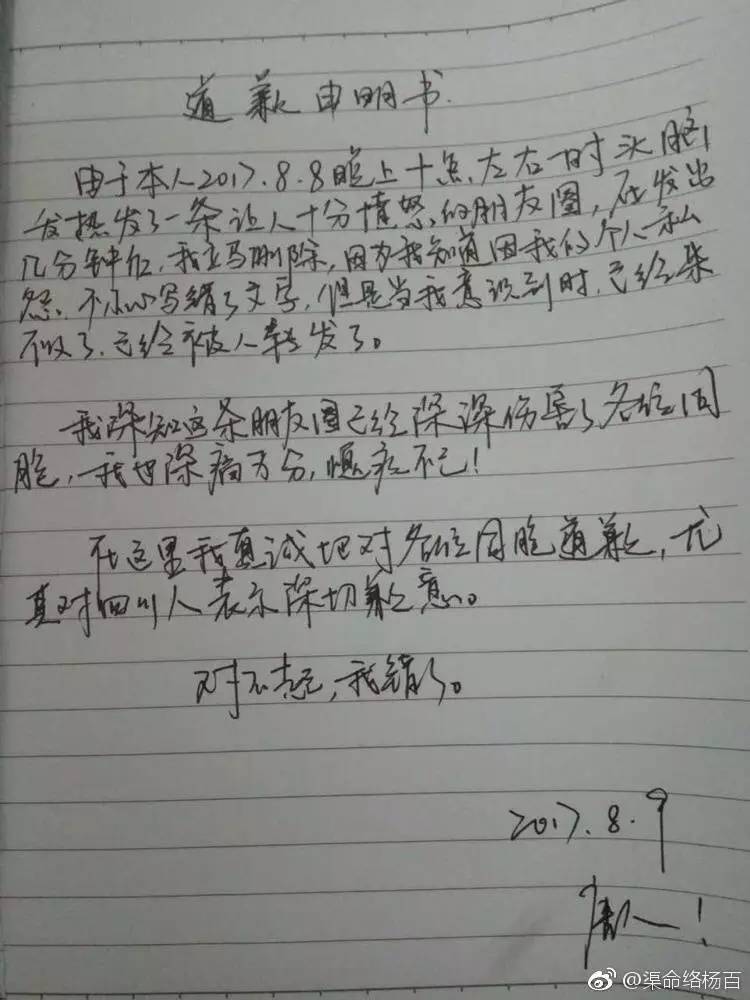 道歉申明书
由于本人2017.8.8晚上十点左右一时头脑
发热发了一条让人十分愤怒的朋友圈,在发出
几分钟后,我立马删除,因为我知道因我的个人私
怨、不小心写错了文字,但是当我意识到时,已经来
不及了,已经被人转发了。
我深知这条朋友圈已经深深伤害了各位同
胞,我也深痛万分,愧疚不已!
在这里我真诚地对各位同胞道歉,尤
其对四川人表示深切歉意。
对不起,我错了。
2017.8.9
@渠命络杨百